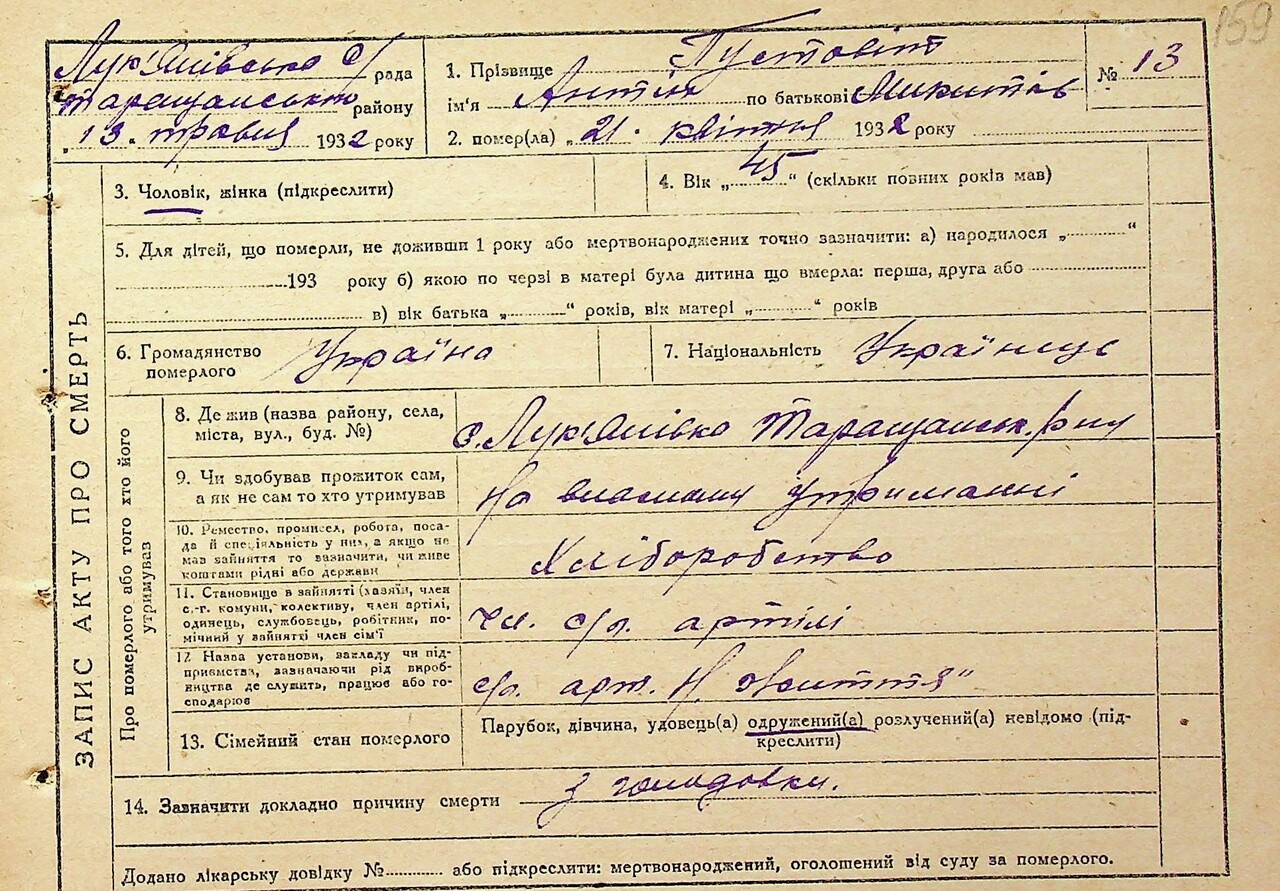 159
Лук'янівська с/рада
Таращанського району
„13. травня 1932 року
1. Прізвище Пустовіт
ім'я Антін по батькові Микитів
2. помер(ла) „21. квітня 1932 року
№ 13
ЗАПИС АКТУ ПРО СМЕРТЬ
3. Чоловік, жінка (підкреслити)
4. Вік „45“ (скільки повних років мав)
5. Для дітей, що померли, не доживши 1 року або мертвонароджених точно зазначити: а) народилося „ “
193 року б) якою по черзі в матері була дитина що вмерла: перша, друга або
в) вік батька „ “ років, вік матері „ “ років
6. Громадянство
померлого
Україна
7. Національність Українець
Про померлого або того хто його
утримував
8. Де жив (назва району, села,
міста, вул., буд. №)
с. Лук'янівка Таращанськ. р-ну
9. Чи здобував прожиток сам,
а як не сам то хто утримував
На власному утриманні
10. Ремество, промисел, робота, поса-
да й спеціяльність у них, а якщо не
мав зайняття то зазначити, чи живе
коштами рідні або держави
Хліборобство
11. Становище в зайнятті (хазяїн, член
с.-г. комуни, колективу, член артілі,
одинець, службовець, робітник, по-
мічний у зайнятті член сім'ї
чл. с/г. артілі
12. Назва установи, закладу чи під-
приємства, зазначаючи рід вироб-
ництва де служить, працює або го-
сподарює
с/г. арт. Н. життя“
13. Сімейний стан померлого
Парубок, дівчина, удовець(а) одружений(а) розлучений(а) невідомо (під-
креслити)
14. Зазначити докладно причину смерти з голодовки.
Додано лікарську довідку № або підкреслити: мертвонароджений, оголошений від суду за померлого.